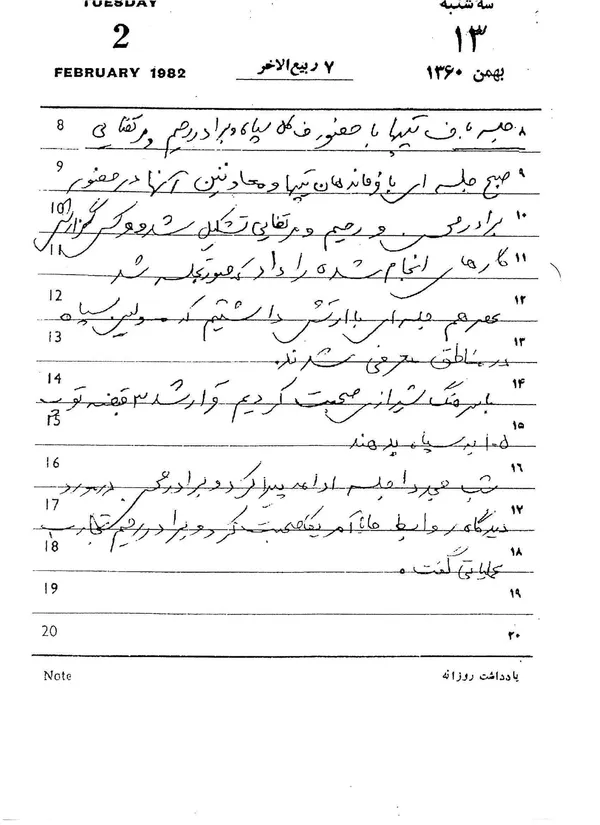 TUESDAY سه شنبه
2 ۱۳
FEBRUARY 1982 ۷ ربیع‌الاخر بهمن ۱۳۶۰
8 جلسه با ف تیپها با حضور ف کل سپاه و برادر رحیم و مرتضایی ۸
9 صبح جلسه ای با فرماندهان تیپها و معاونین آنها در حضور ۹
10 برادر و رحیم و مرتضایی تشکیل شد و گزارش ۱۰
11 کارهای انجام شده را داد که صورتجلسه شد ۱۱
12 عصر هم جلسه ای با ارتش داشتیم که مسولین سپاه ۱۲
13 در مناطق معرفی شدند. ۱۳
14 با سرهنگ شیرازی صحبت کردیم قرار شد ۳ قبضه توپ ۱۴
15 ۱۰۵ به سپاه بدهند ۱۵
16 شب مجددا جلسه ادامه پیدا کرد و برادر در مورد ۱۶
17 دیدگاه روابط ما با آمریکا صحبت کرد و برادر رحیم تجارب ۱۷
18 عملیاتی گفت. ۱۸
19 ۱۹
20 ۲۰
Note یادداشت روزانه